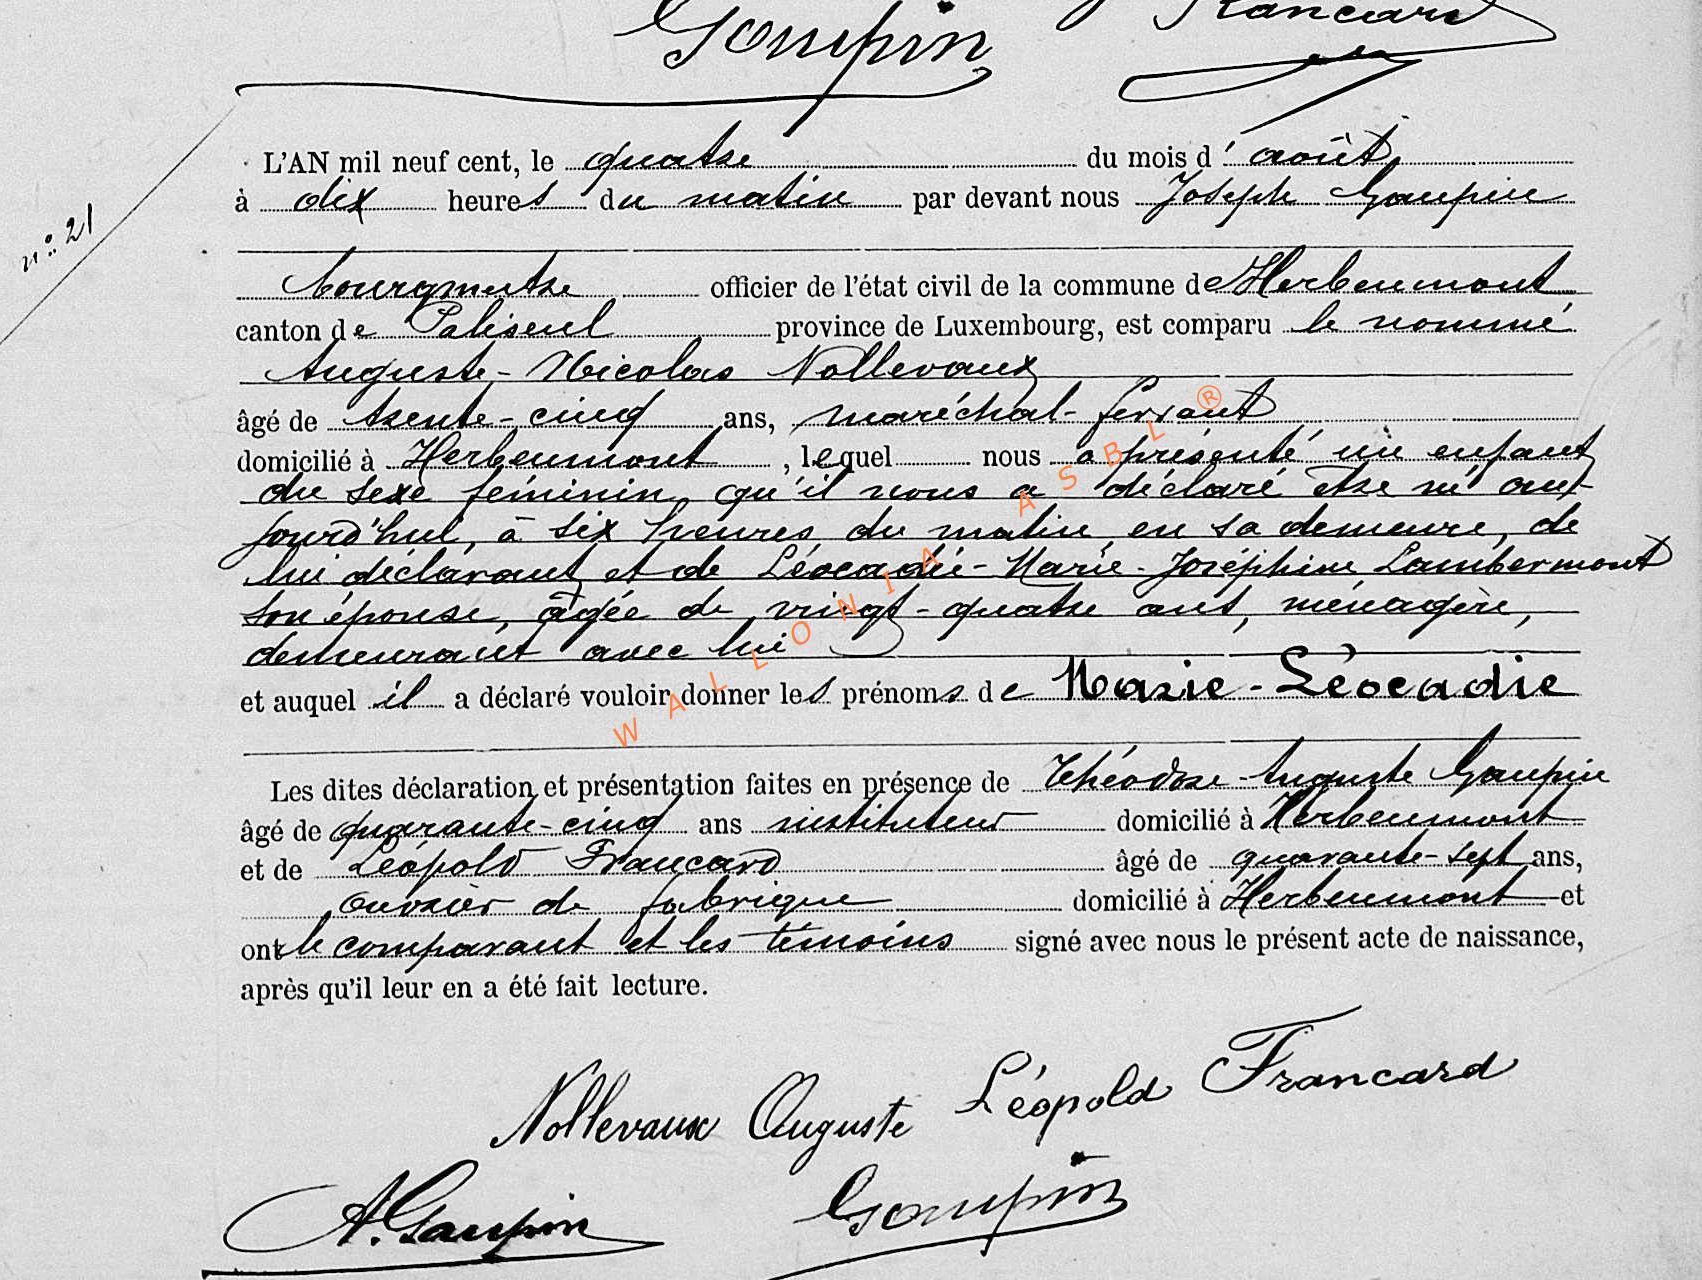 Goupin Francard
L'AN mil neuf cent, le quatre du mois d'août,
à dix heures du matin par devant nous Joseph Gaupin
n° 21
bourgmestre officier de l'état civil de la commune de Herbeumont
canton de Paliseul province de Luxembourg, est comparu le nommé
Auguste-Nicolas Nollevaux
âgé de trente-cinq ans, maréchal-ferrant
domicilié à Herbeumont, lequel nous a présenté un enfant
du sexe féminin, qu'il nous a déclaré être né au-
jourd'hui, à six heures du matin, en sa demeure, de
lui déclarant et de Léocadie-Marie-Joséphine Lambermont
son épouse, âgée de vingt-quatre ans, ménagère,
demeurant avec lui
et auquel il a déclaré vouloir donner les prénoms de Marie-Léocadie
WALLONIA ASBL ®
Les dites déclaration et présentation faites en présence de Théodore-Auguste Gaupin
âgé de quarante-cinq ans instituteur domicilié à Herbeumont
et de Léopold Francard âgé de quarante-sept ans,
ouvrier de fabrique domicilié à Herbeumont et
ont le comparant et les témoins signé avec nous le présent acte de naissance,
après qu'il leur en a été fait lecture.
Nollevaux Auguste Léopold Francard
A. Gaupin Goupin